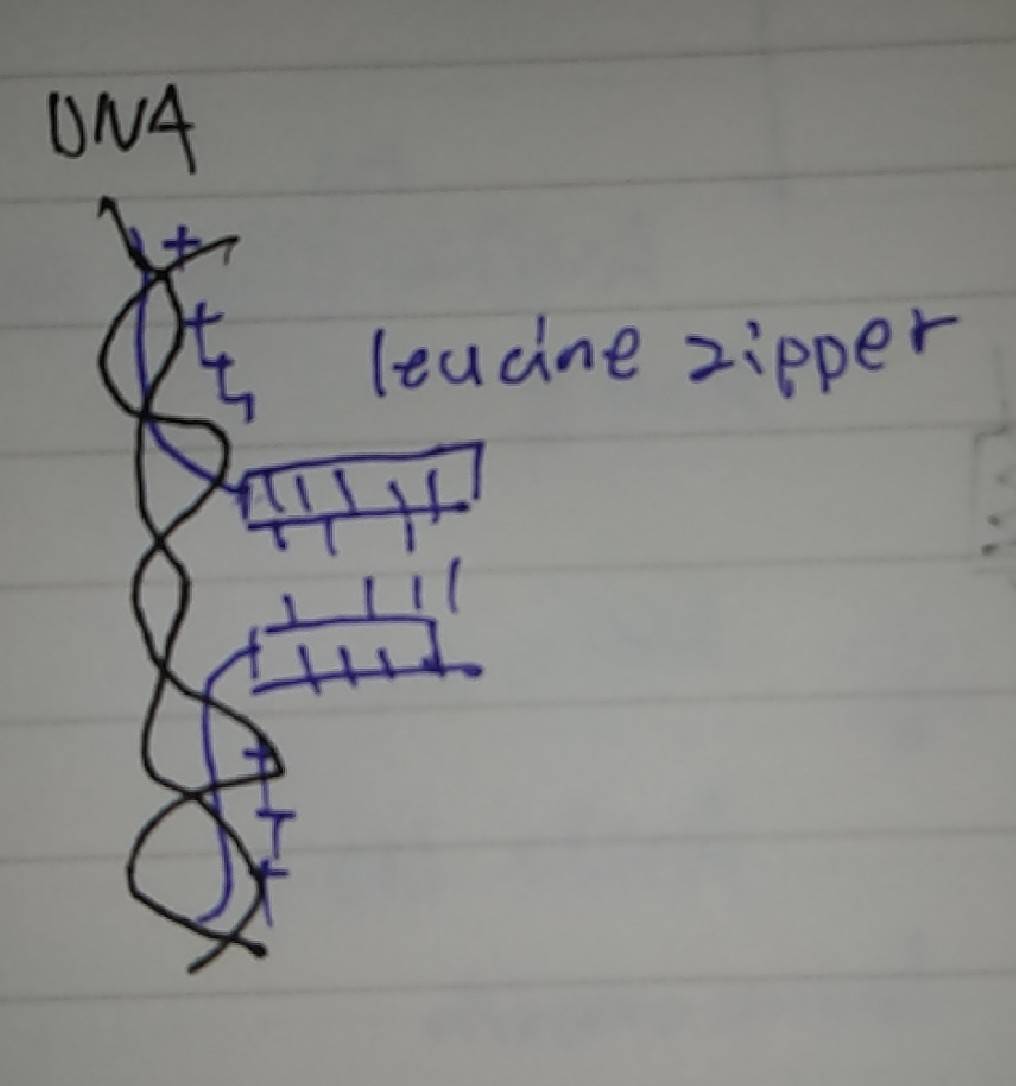 DNA
+
+
+
leucine zipper
+
+
+